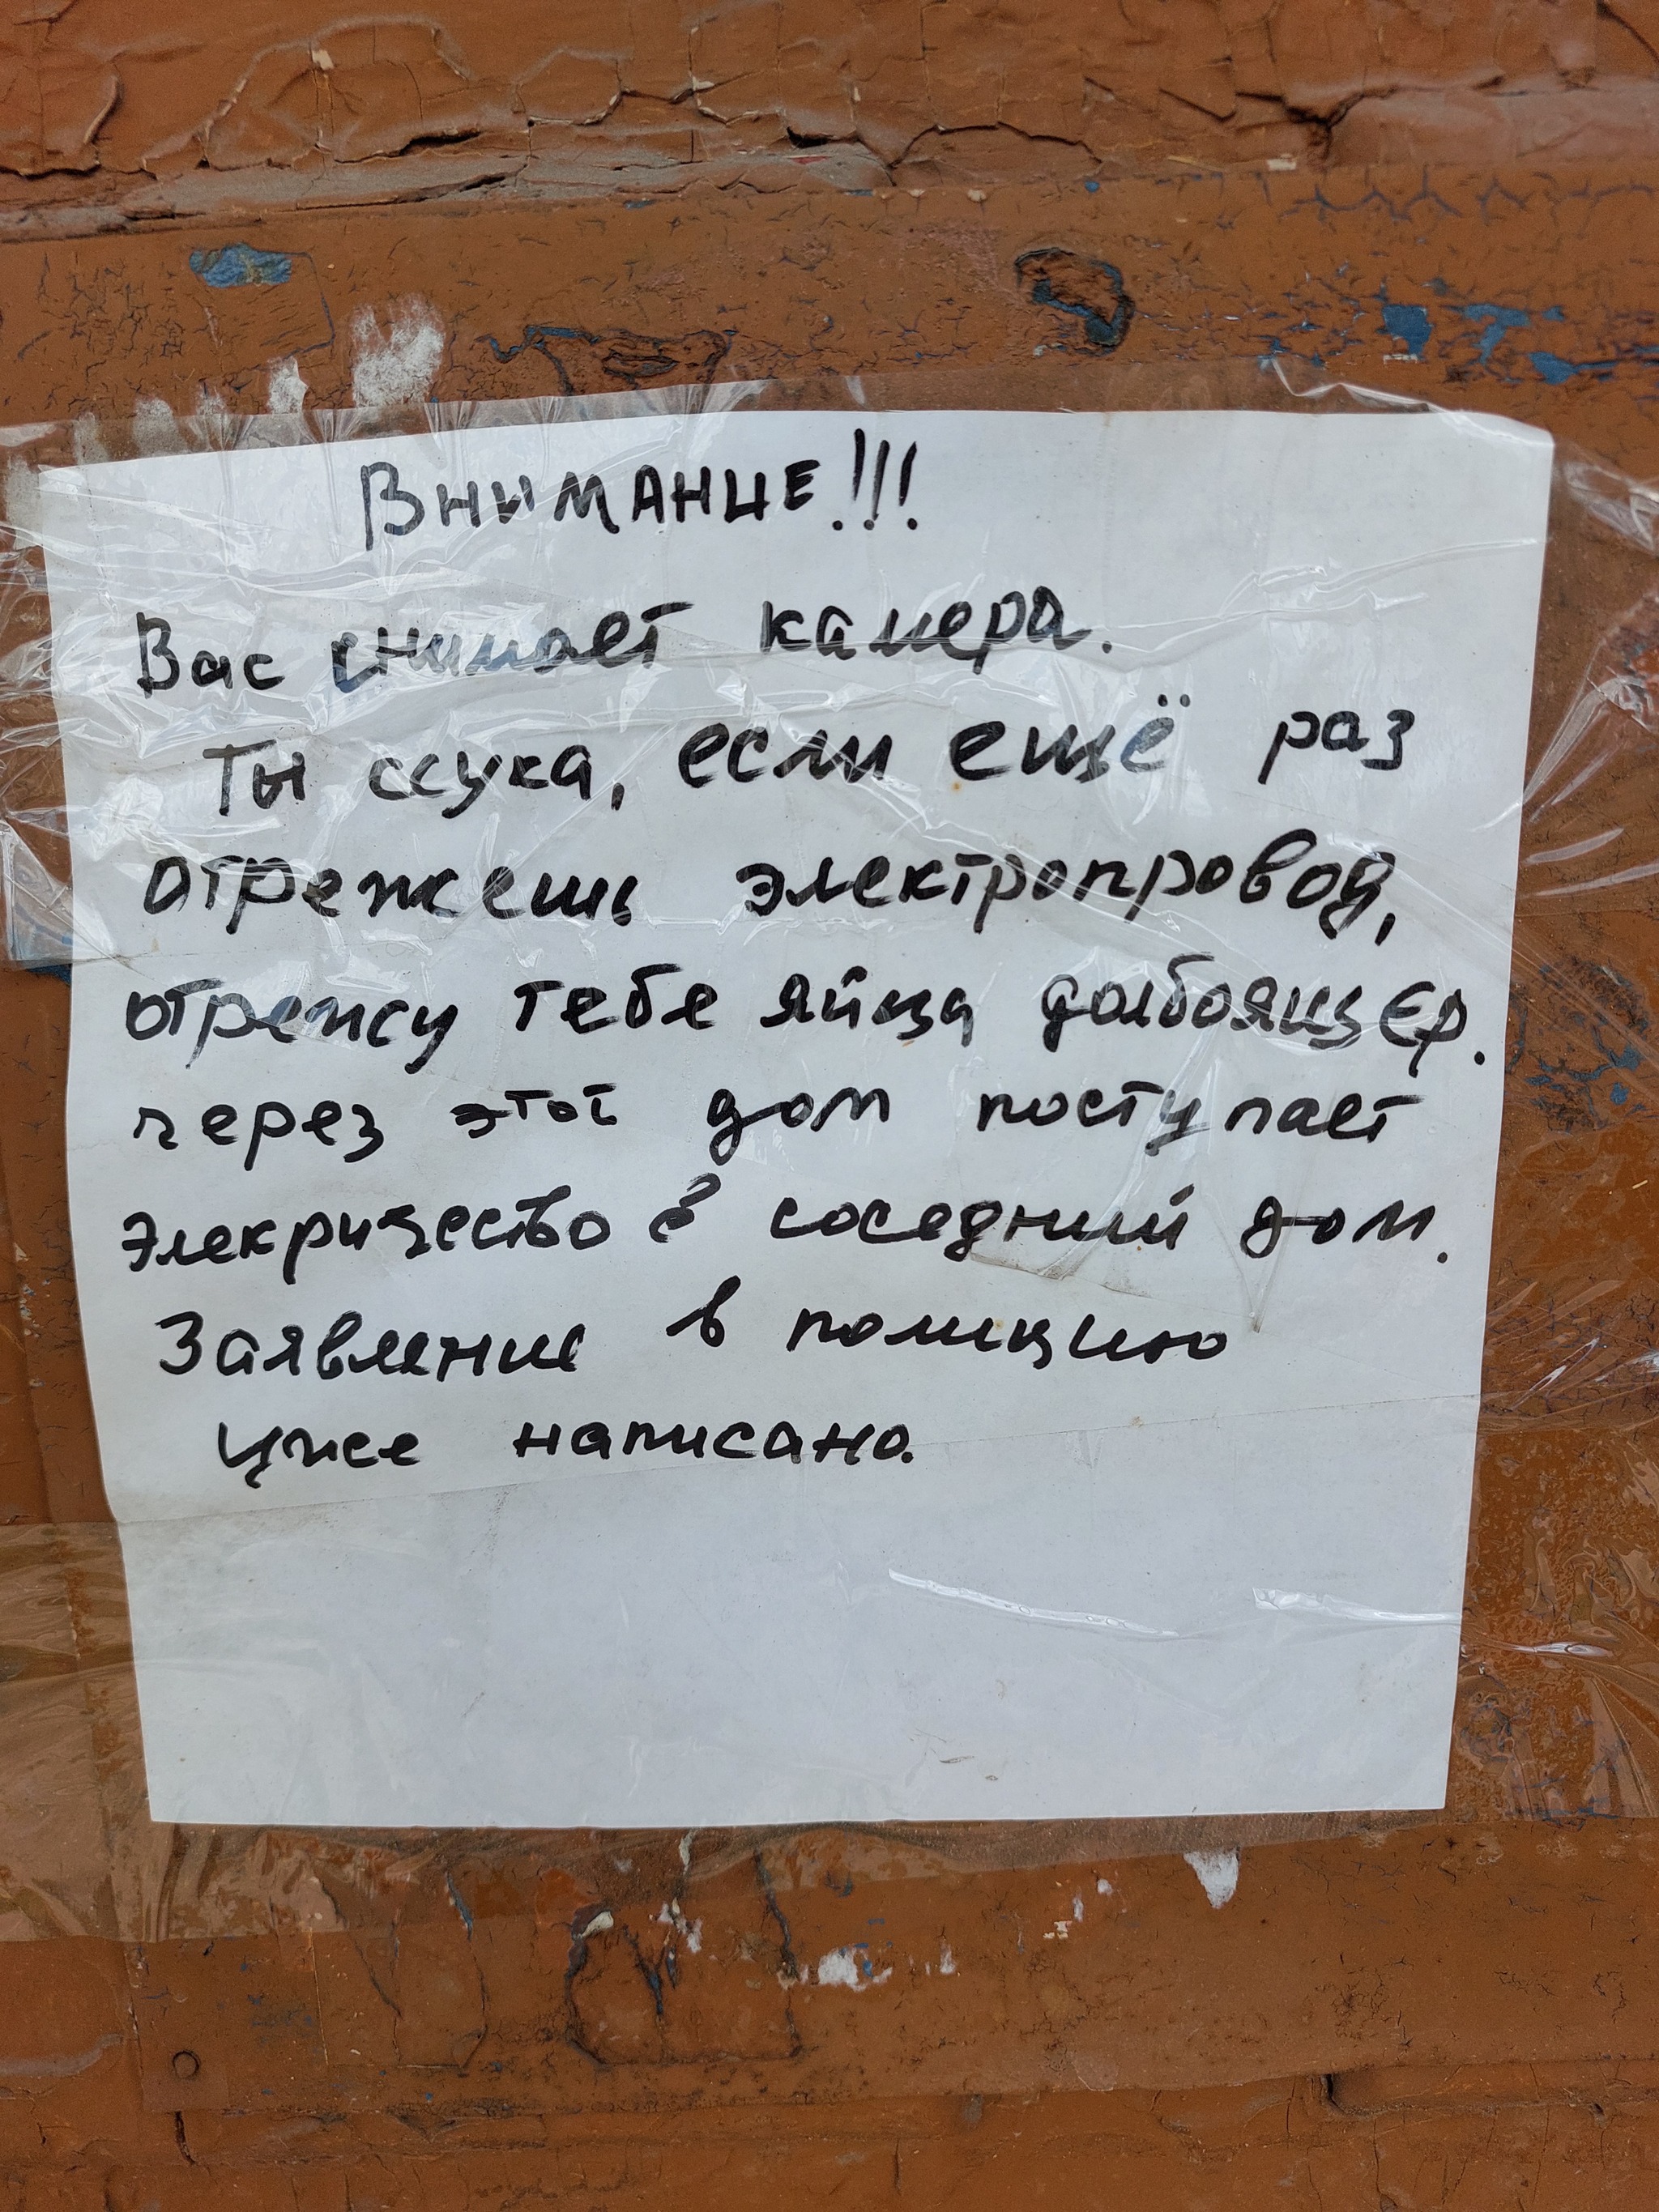 Внимание!!!
Вас снимает камера.
Ты ссука, если ещё раз
отрежешь электропровод,
отрежу тебе яйца долбоящер.
через этот дом поступает
элекричество в соседний дом.
Заявление в полицию
уже написано.